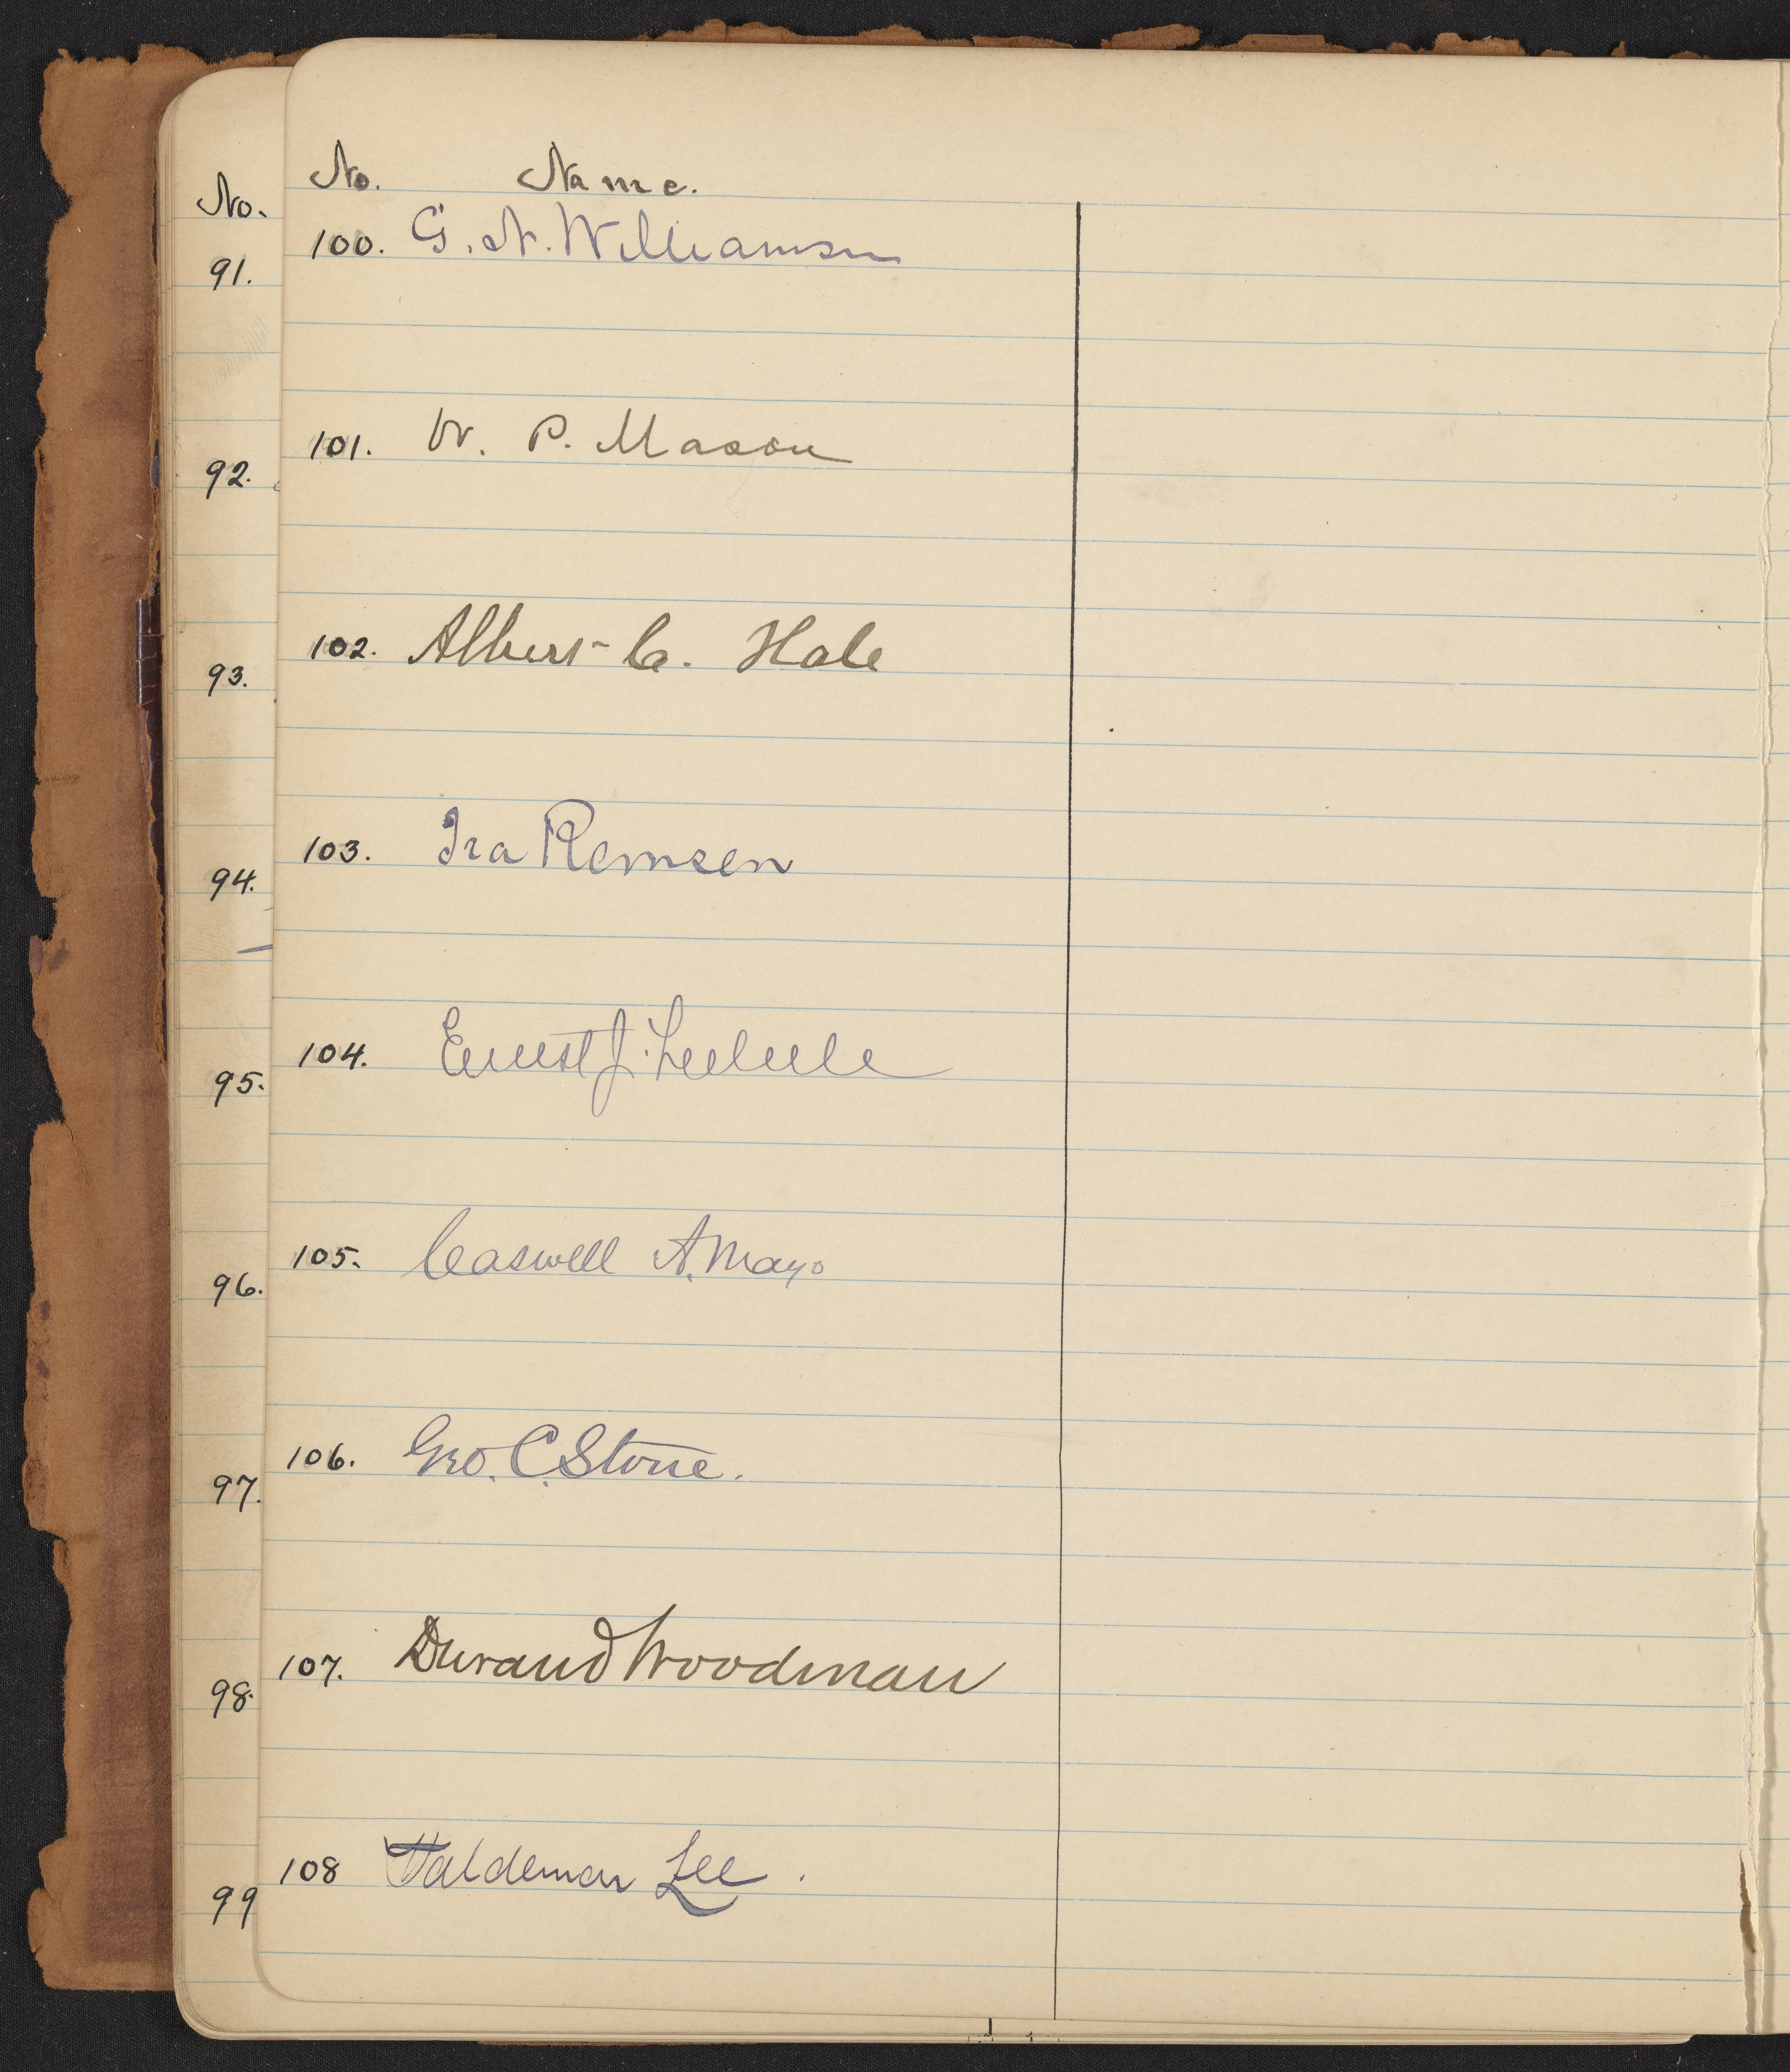 No.
91.
92.
93.
94.
95.
96.
97.
98.
99
No. Name.
100. G. N. Williamson
101. W. P. Mason
102. Albert C. Hale
103. Ira Remsen
104. Ernest J. Lederle
105. Caswell A. Mayo
106. Geo. C. Stone.
107. Durand Woodman
108 Waldemar Lee.